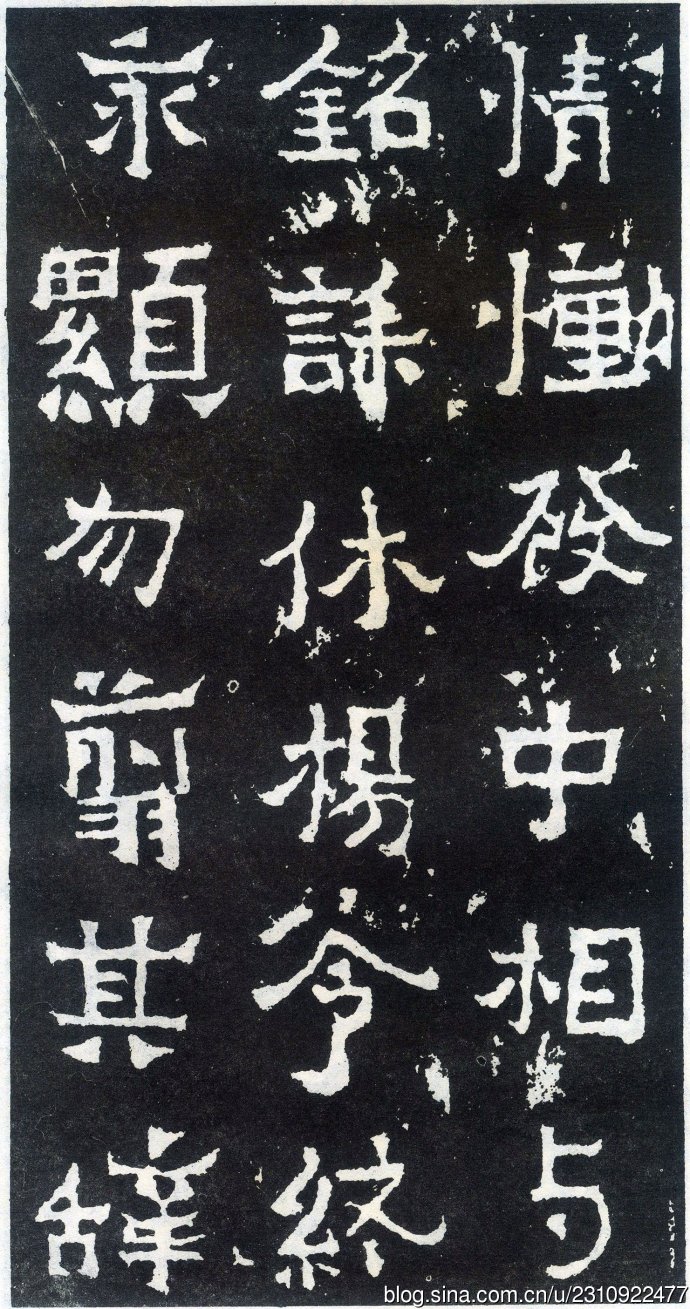 情慟發中相与
銘誄休楊令終
永顯勿翦其辞
blog.sina.com.cn/u/2310922477